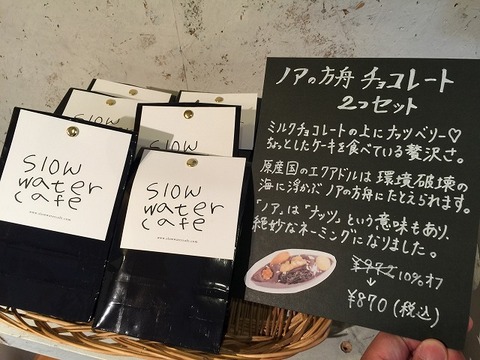 slow
water
cafe
www.slowwatercafe.com
slow
water
cafe
www.slowwatercafe.com
slow
water
cafe
ノアの方舟 チョコレート
2つセット
ミルクチョコレートの上にナッツベリー♡
ちょっとしたケーキを食べている贅沢さ。
原産国のエクアドルは環境破壊の
海に浮かぶノアの方舟にたとえられます。
「ノア」は「ナッツ」という意味もあり、
絶妙なネーミングになりました。
¥972 10%オフ
↓
¥870(税込)